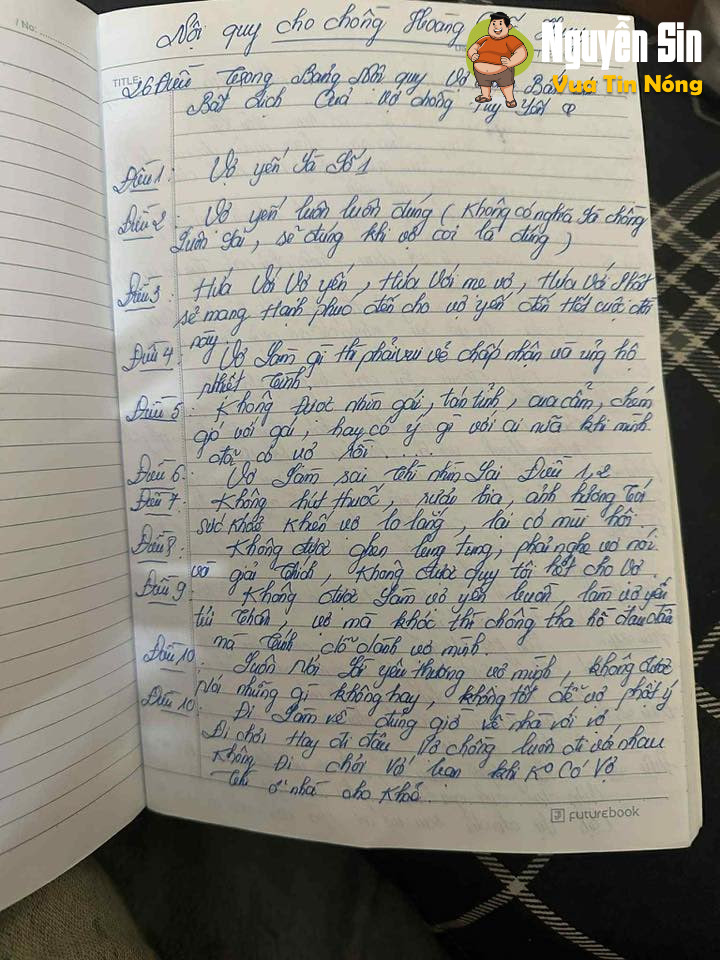 Nội quy cho chồng Hoàng
Nguyễn Sin
Vua Tin Nóng
/ No:
TITLE
26 Điều trong Bảng Nội quy Vợ Ban
Bất dịch Của vợ chồng Tuy Yến
Điều 1: Vợ yến là số 1
Điều 2: Vợ yến luôn luôn đúng ( Không có nghĩa là chồng
luôn sai, sẽ đúng khi vợ coi là đúng )
Điều 3: Hứa Với Vợ yến, Hứa Với mẹ vợ, Hứa Với Phật
sẽ mang Hạnh phúc đến cho vợ yến đến Hết cuộc đời
này.
Điều 4: Vợ làm gì thì phải vui vẻ chấp nhận và ủng hộ
nhiệt tình.
Điều 5: Không được nhìn gái, tán tỉnh, cưa cẩm, chém
gió với gái, hay có ý gì với ai nữa khi mình
đã có vợ rồi ....
Điều 6: Vợ làm sai thì nhìn lại Điều 1, 2
Điều 7: Không hút thuốc, rượu bia, ảnh hưởng tới
sức khoẻ khiến vợ lo lắng, lại có mùi hôi.
Điều 8: Không được ghen lung tung, phải nghe vợ nói
và giải thích, Không được quy tội hết cho Vợ.
Điều 9: Không được làm vợ yến buồn làm vợ yến
tủi thân, vợ mà khóc thì chồng tha hồ đau đầu
mà tính dỗ dành vợ mình.
Điều 10: Luôn nói lời yêu thương vợ mình, không được
nói những gì không hay, không tốt để vợ phật ý
Điều 10: Đi làm về đúng giờ về nhà với vợ,
Đi chơi Hay đi đâu Vợ chồng luôn đi với nhau
Không Đi chơi Với bạn khi Ko Có Vợ
Thì ở nhà cho khoẻ.
FUTUREBOOK